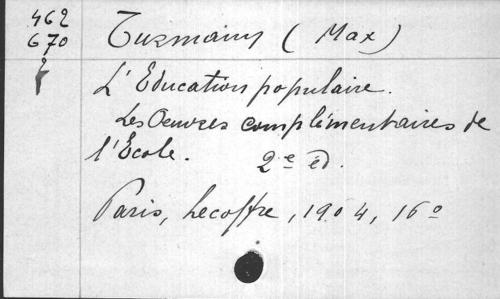 462
670
Turmann (Max)
L'Education populaire.
Les Oeuvres complémentaires de
l'École. 2e éd.
Paris, Lecoffre, 1904, 16o